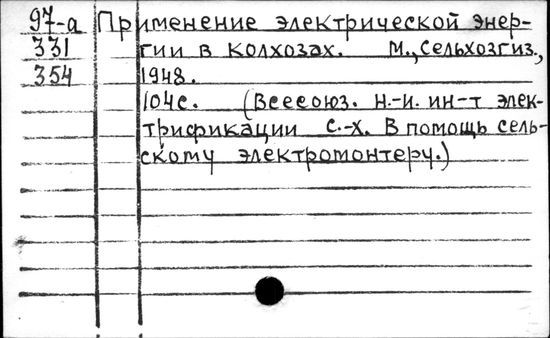 97-а Применение электрической энер-
331 гии в колхозах. М., Сельхозгиз.,
354 1948.
104с. (Всесоюз. н.-и. ин-т элек-
трификации с.-х. В помощь сель-
скому электромонтеру.)